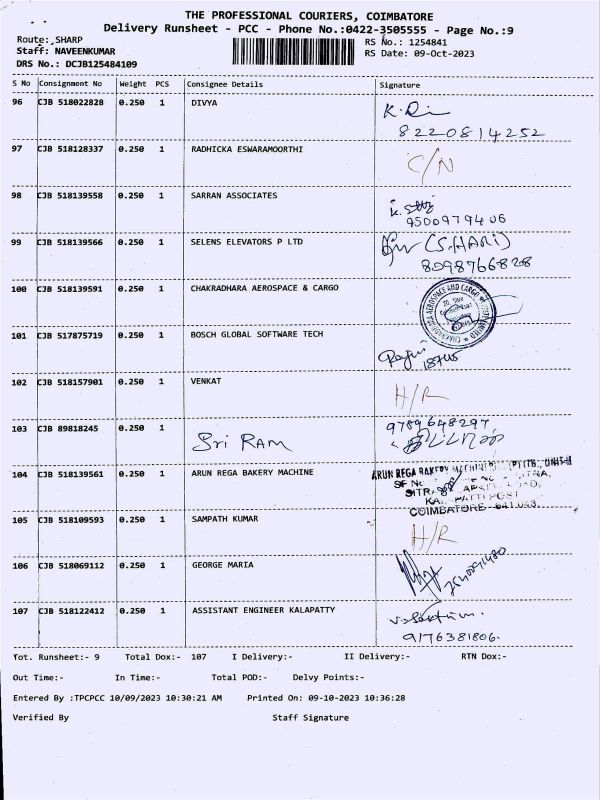 THE PROFESSIONAL COURIERS, COIMBATORE
Delivery Runsheet - PCC - Phone No.:0422-3505555 - Page No.:9
Route: SHARP RS No.: 1254841
Staff: NAVEENKUMAR RS Date: 09-Oct-2023
DRS No.: DCJB125484109
S No Consignment No Weight PCS Consignee Details Signature
96 CJB 518022828 0.250 1 DIVYA K.Di
8220814252
97 CJB 518128337 0.250 1 RADHICKA ESWARAMOORTHI C/N
98 CJB 518139558 0.250 1 SARRAN ASSOCIATES
9500979406
99 CJB 518139566 0.250 1 SELENS ELEVATORS P LTD (S.HARI)
8098766828
100 CJB 518139591 0.250 1 CHAKRADHARA AEROSPACE & CARGO
101 CJB 517875719 0.250 1 BOSCH GLOBAL SOFTWARE TECH
102 CJB 518157901 0.250 1 VENKAT H/R
103 CJB 89818245 0.250 1 Sri RAM 9789648297
104 CJB 518139561 0.250 1 ARUN REGA BAKERY MACHINE ARUN REGA BAKERY
COIMBATORE
105 CJB 518109593 0.250 1 SAMPATH KUMAR H/R
106 CJB 518069112 0.250 1 GEORGE MARIA
107 CJB 518122412 0.250 1 ASSISTANT ENGINEER KALAPATTY
9176381806.
Tot. Runsheet:- 9 Total Dox:- 107 I Delivery:- II Delivery:- RTN Dox:-
Out Time:- In Time:- Total POD:- Delvy Points:-
Entered By :TPCPCC 10/09/2023 10:30:21 AM Printed On: 09-10-2023 10:36:28
Verified By Staff Signature